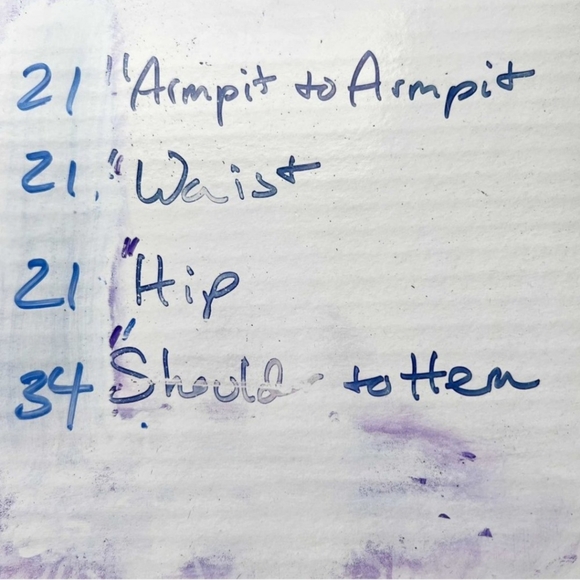 21" Armpit to Armpit
21." Waist
21" Hip
34" Should to Hem